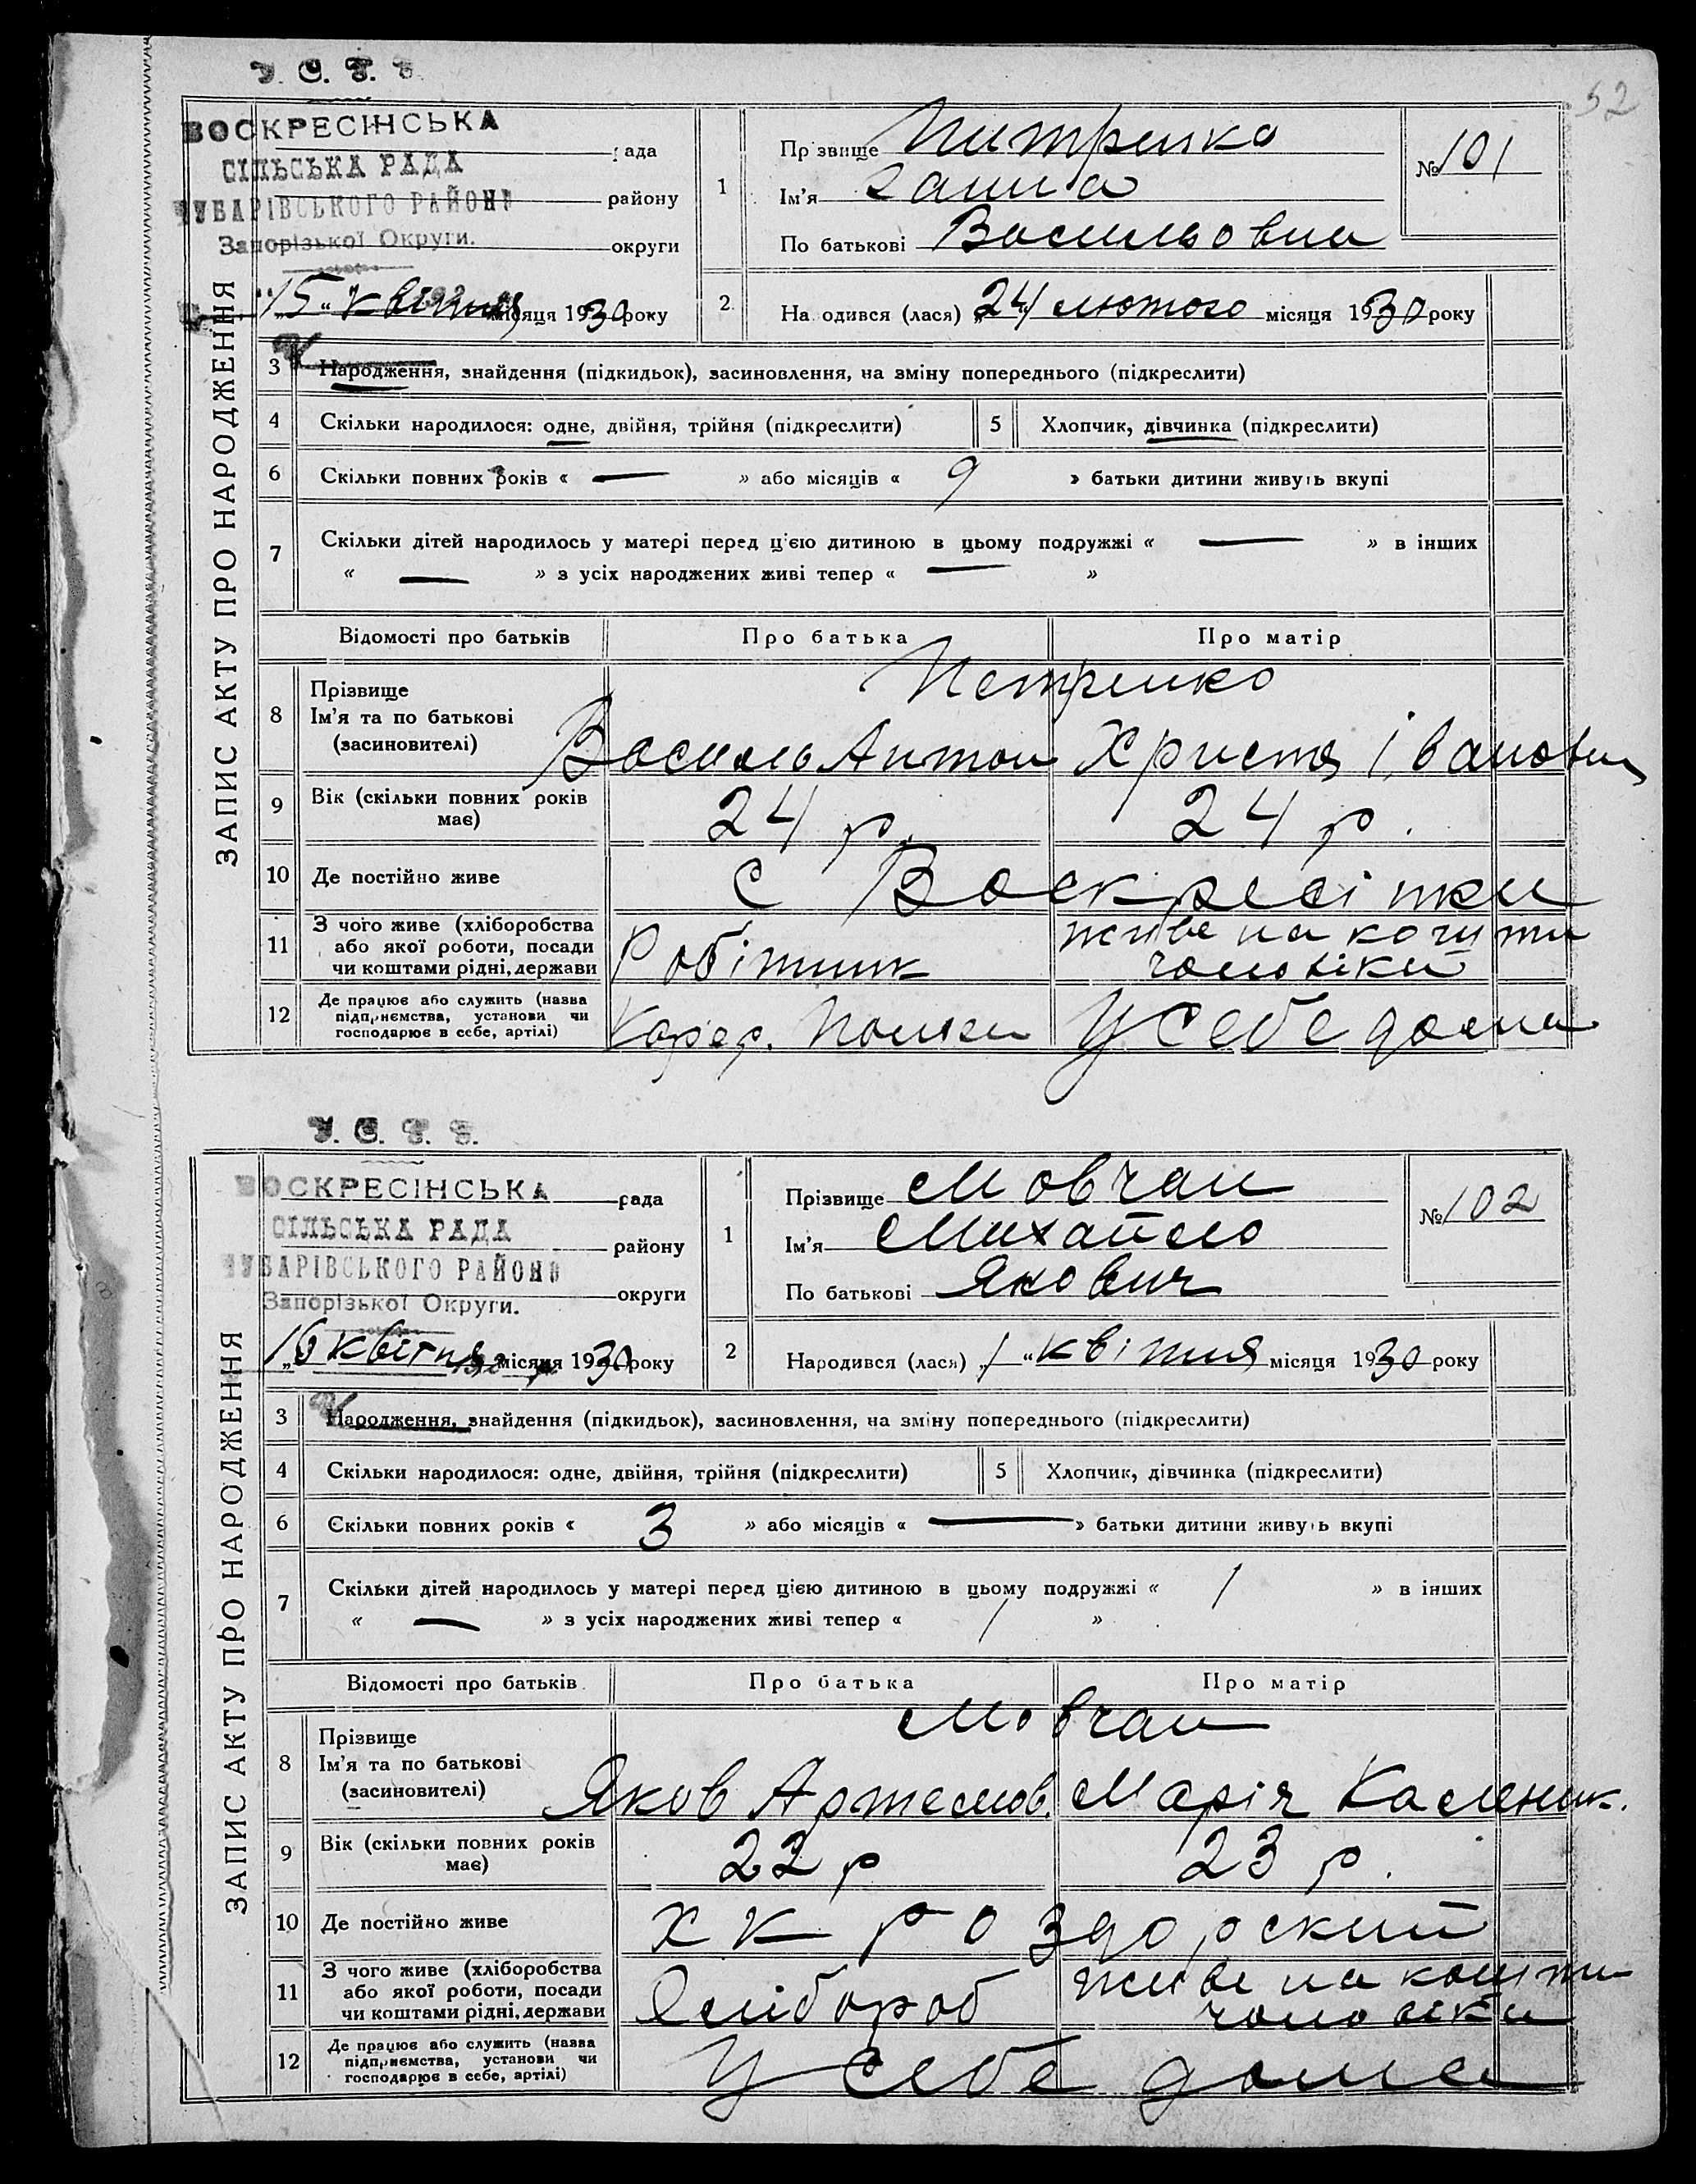 У. С. Р. Р.
52
ВОСКРЕСІНСЬКА рада
СІЛЬСЬКА РАДА
ЧУБАРІВСЬКОГО РАЙОНУ району
Запорізької Округи. округи
"15" квітня місяця 1930 року
1 Прізвище Питренко
Ім'я Ганна
По батькові Васильовна
№ 101
2 Народився (лася) "24" лютого місяця 1930 року
ЗАПИС АКТУ ПРО НАРОДЖЕННЯ
3 Народження, знайдення (підкидьок), засиновлення, на зміну попереднього (підкреслити)
4 Скільки народилося: одне, двійня, трійня (підкреслити)
5 Хлопчик, дівчинка (підкреслити)
6 Скільки повних років « — » або місяців « 9 » батьки дитини живуть вкупі
7 Скільки дітей народилось у матері перед цією дитиною в цьому подружжі « — » в інших
« — » з усіх народжених живі тепер « — »
Відомості про батьків Про батька Про матір
8 Прізвище
Ім'я та по батькові
(засиновителі)
Петренко
Василь Антон Христя Івановна
9 Вік (скільки повних років
має)
24 р. 24 р.
10 Де постійно живе
с Воскресінки
11 З чого живе (хліборобства
або якої роботи, посади
чи коштами рідні, держави
Робітник
живе на кошти
чоловіки
12 Де працює або служить (назва
підприємства, установи чи
господарює в себе, артілі)
У себе дома
У. С. Р. Р.
ВОСКРЕСІНСЬКА рада
СІЛЬСЬКА РАДА
ЧУБАРІВСЬКОГО РАЙОНУ району
Запорізької Округи. округи
"16 квітня місяця 1930 року
1 Прізвище Мовчан
Ім'я Михайло
По батькові Якович
№ 102
2 Народився (лася) "1" квітня місяця 1930 року
ЗАПИС АКТУ ПРО НАРОДЖЕННЯ
3 Народження, знайдення (підкидьок), засиновлення, на зміну попереднього (підкреслити)
4 Скільки народилося: одне, двійня, трійня (підкреслити)
5 Хлопчик, дівчинка (підкреслити)
6 Скільки повних років « 3 » або місяців « — » батьки дитини живуть вкупі
7 Скільки дітей народилось у матері перед цією дитиною в цьому подружжі « 1 » в інших
« — » з усіх народжених живі тепер « 1 »
Відомості про батьків Про батька Про матір
8 Прізвище
Ім'я та по батькові
(засиновителі)
Мовчан
Яков Артемов. Марія Каленик.
9 Вік (скільки повних років
має)
22 р 23 р.
10 Де постійно живе
х К роздорский
11 З чого живе (хліборобства
або якої роботи, посади
чи коштами рідні, держави
Хлібороб
живе на кошти
чоловіки
12 Де працює або служить (назва
підприємства, установи чи
господарює в себе, артілі)
У себе дома